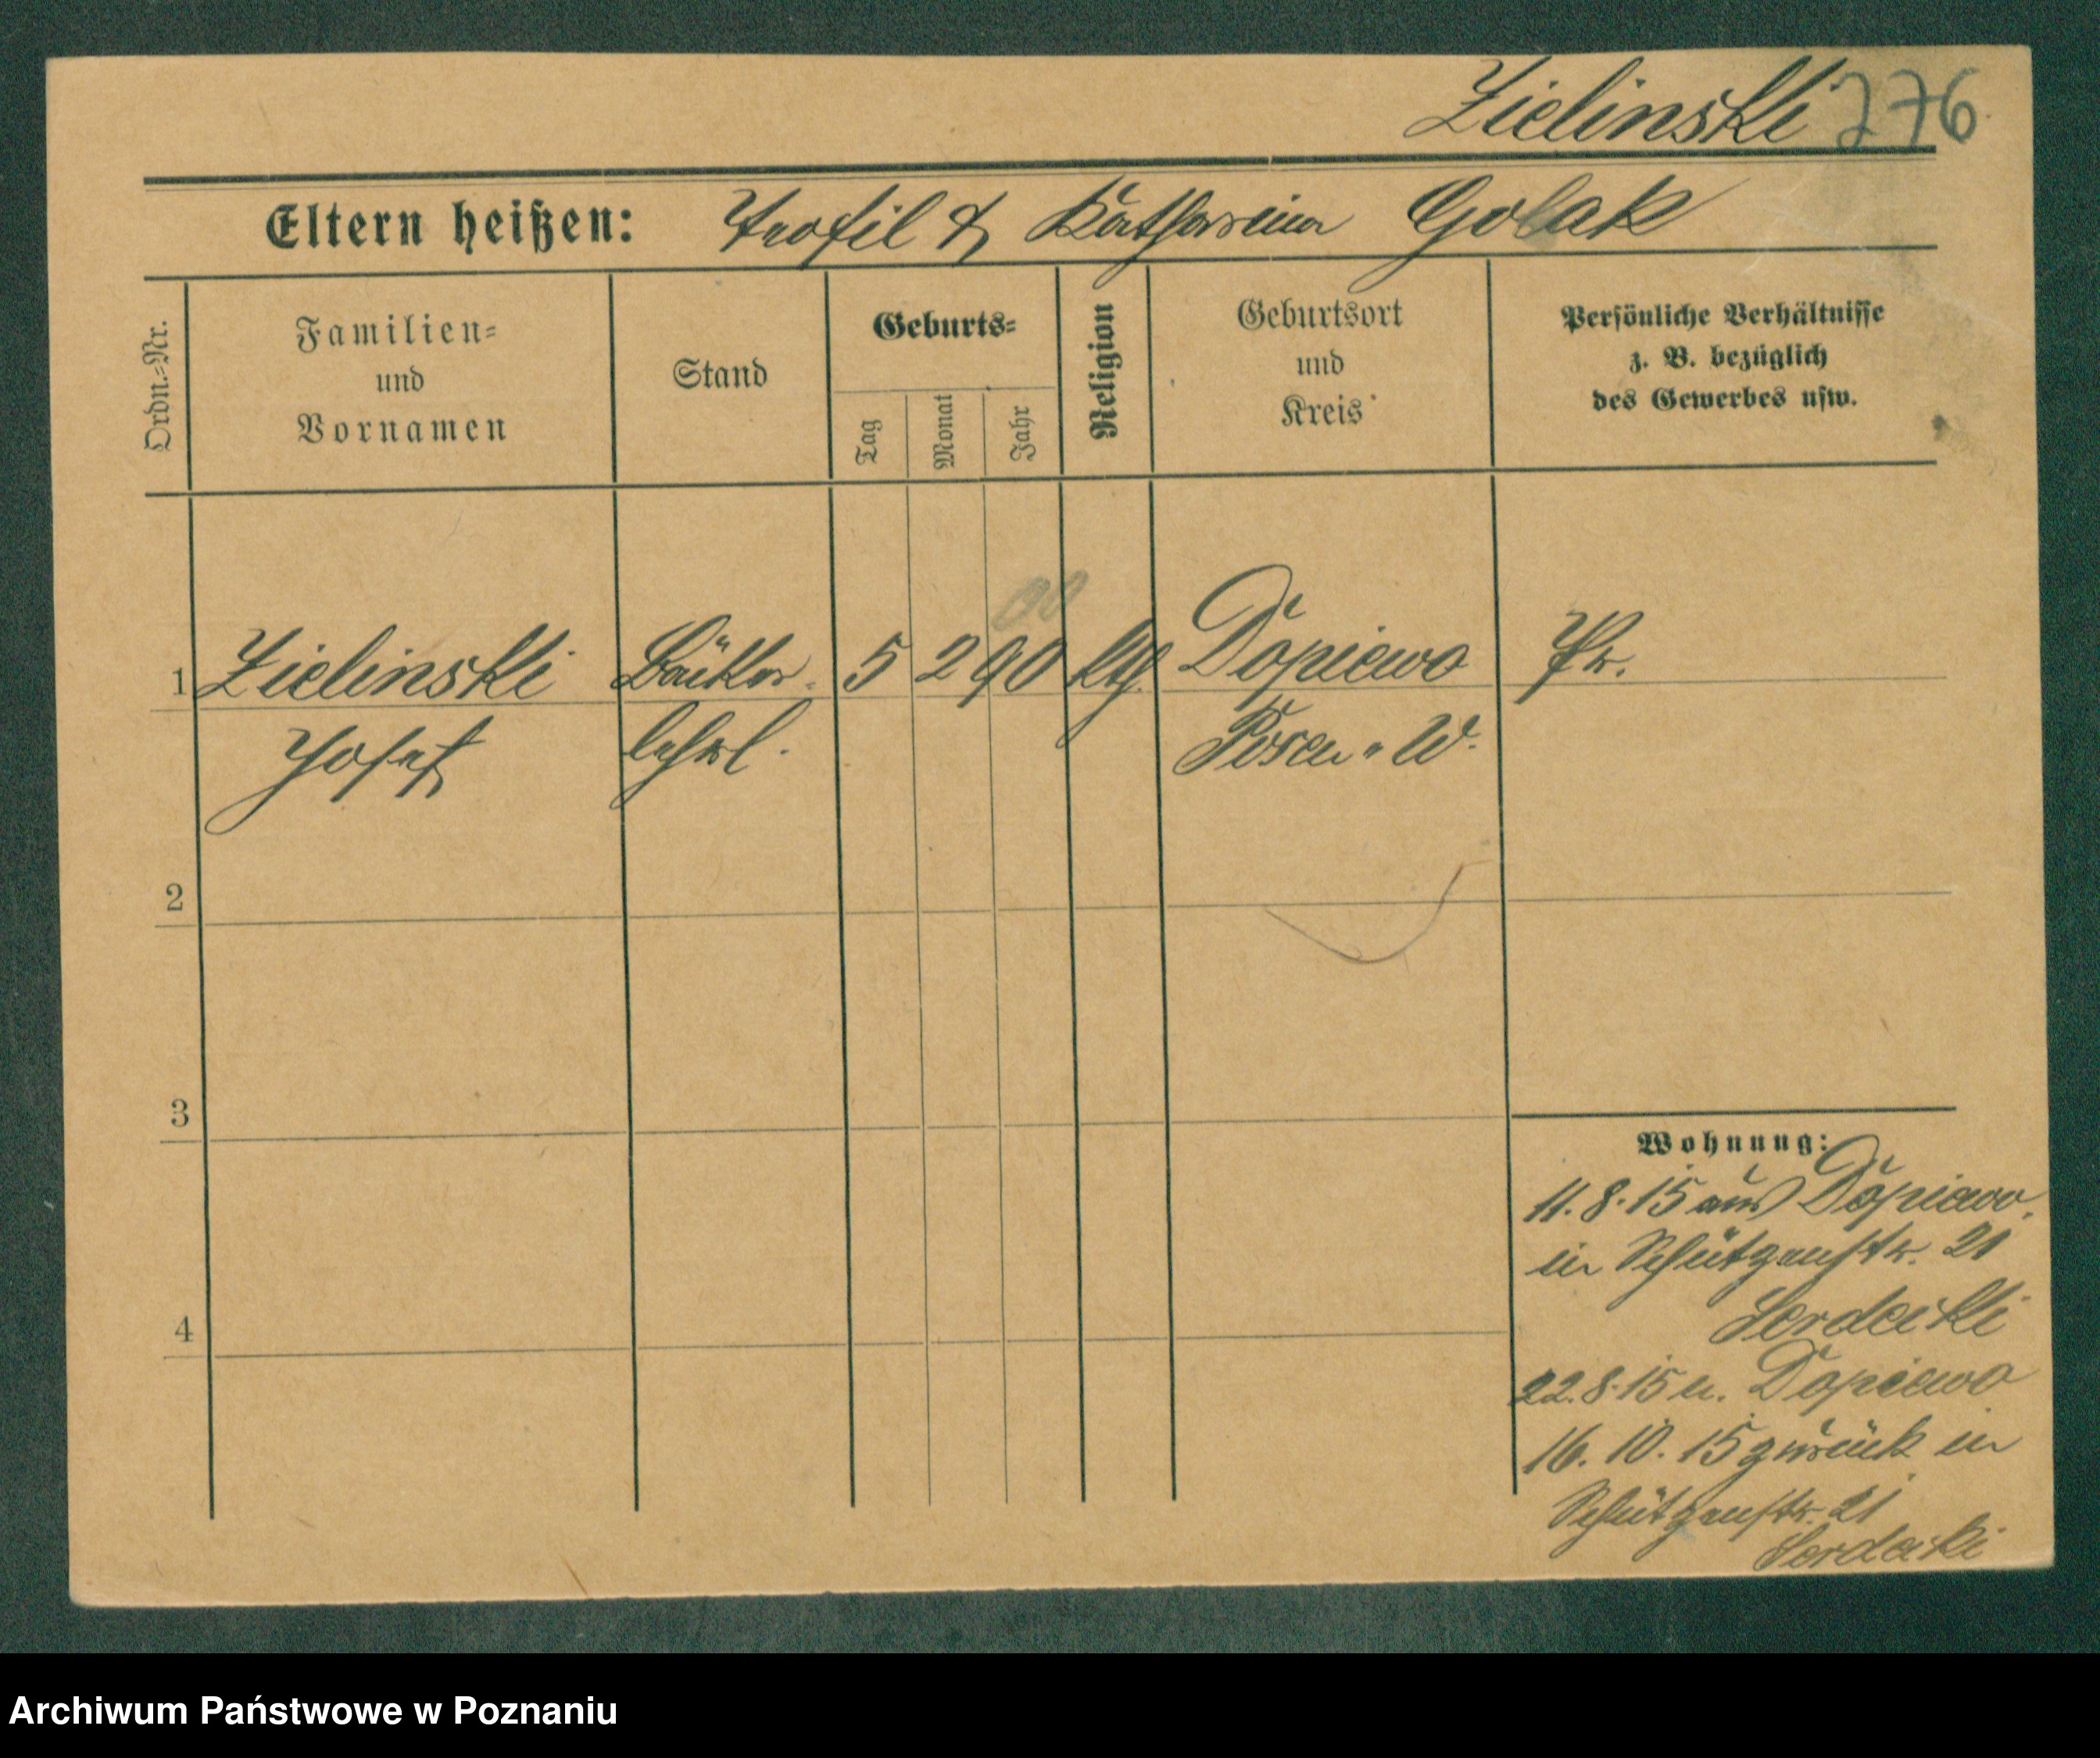 Zielinski 276
Eltern heißen: Trofil & Katharina Golak
Ordn.=Nr.
Familien=
und
Vornamen
Stand
Geburts=
Tag
Monat
Jahr
Religion
Geburtsort
und
Kreis
Persönliche Verhältnisse
z. B. bezüglich
des Gewerbes usw.
00
1 Zielinski Bäcker 5 2 90 kth. Dopiewo Pr.
Josef lehrl. Posen W.
2
3
4
Wohnung:
11.8.15 aus Dopiewo.
in Schützenstr. 21
Serdecki
22.8.15 n. Dopiewo
16.10.15 zurück in
Schützenstr. 21
Serdecki
Archiwum Państwowe w Poznaniu